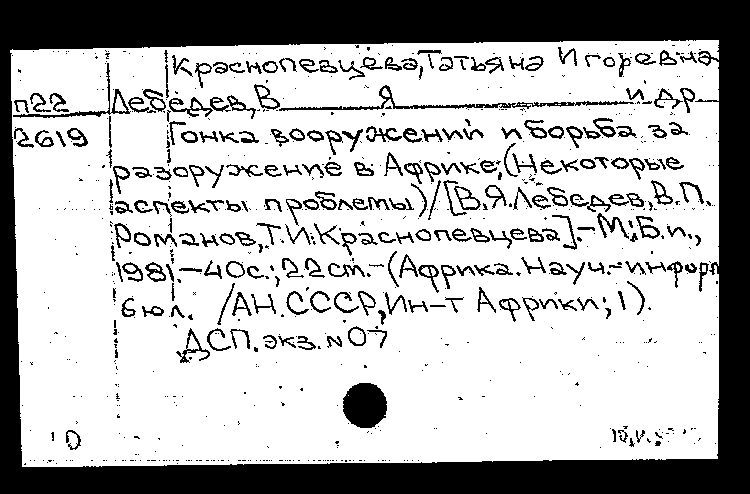 Краснопевцева, Татьяна Игоревна
п22 Лебедев, В Я и др.
2619 Гонка вооружений и борьба за
разоружение в Африке; (Некоторые
аспекты проблемы) / [В.Я. Лебедев, В.П.
Романов, Т.И. Краснопевцева]. - М.; Б.и.,
1981. - 40с.; 22 см. - (Африка. Науч.-информ
бюл. / АН СССР, Ин-т Африки; 1).
ДСП. экз. №07